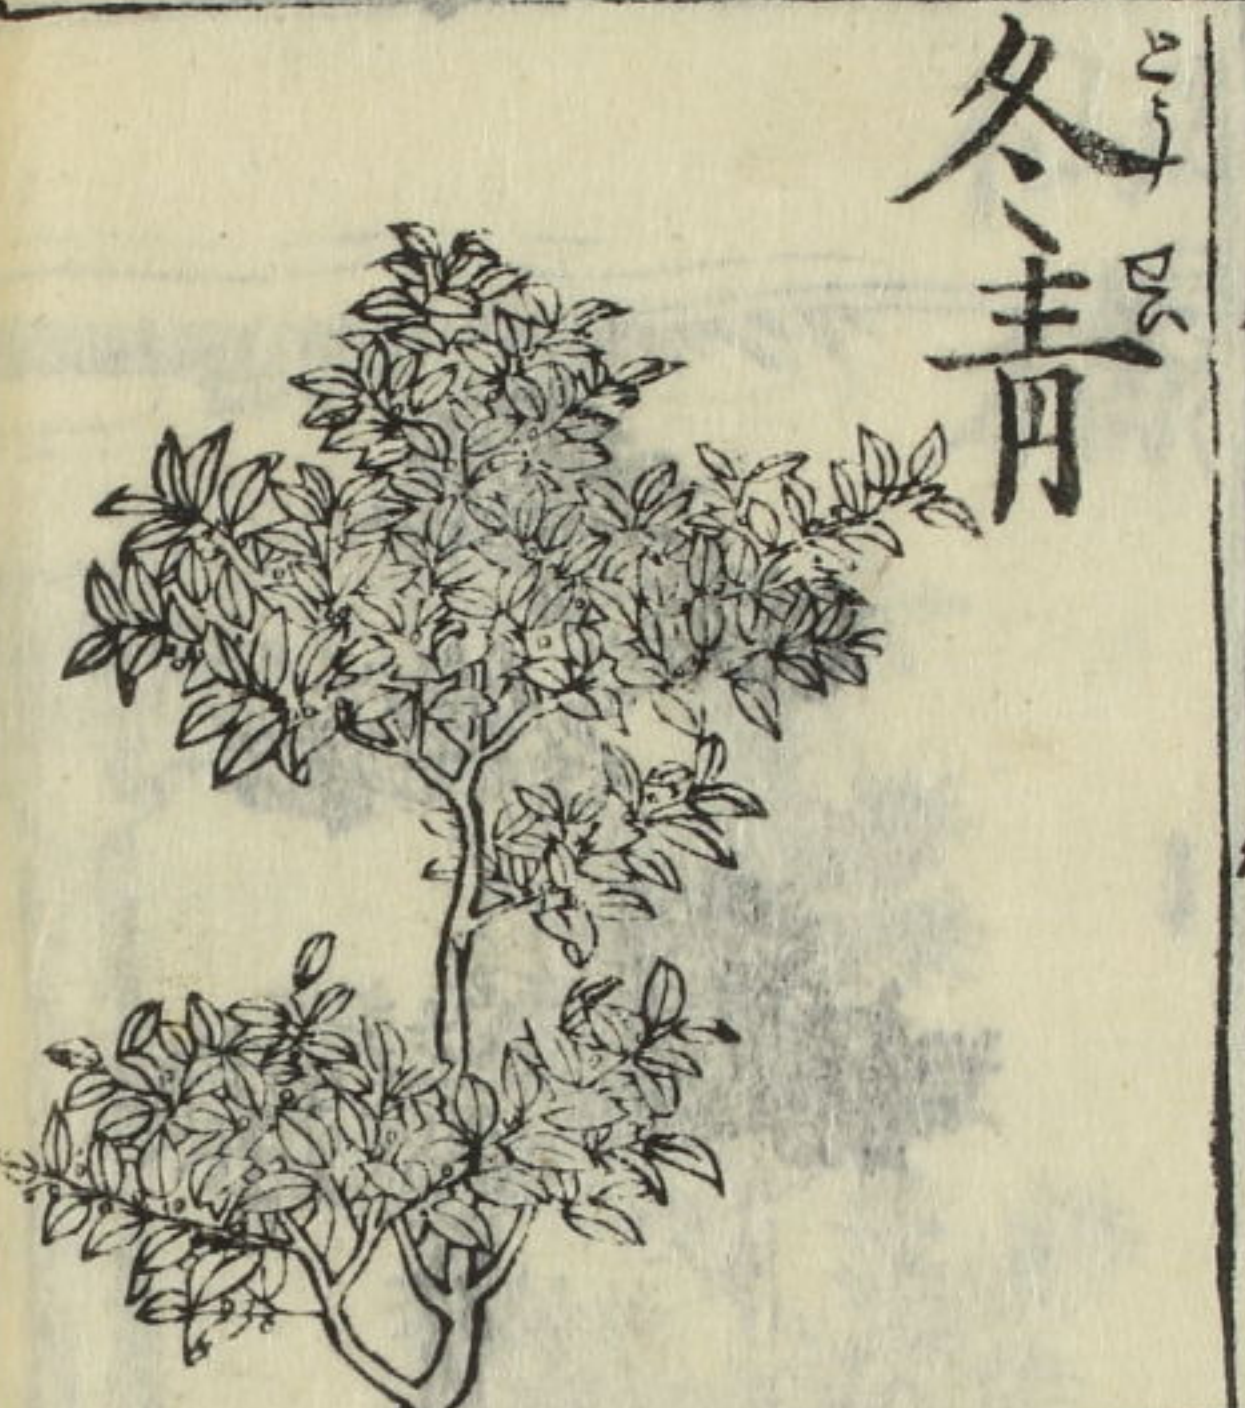 冬青
とうせい